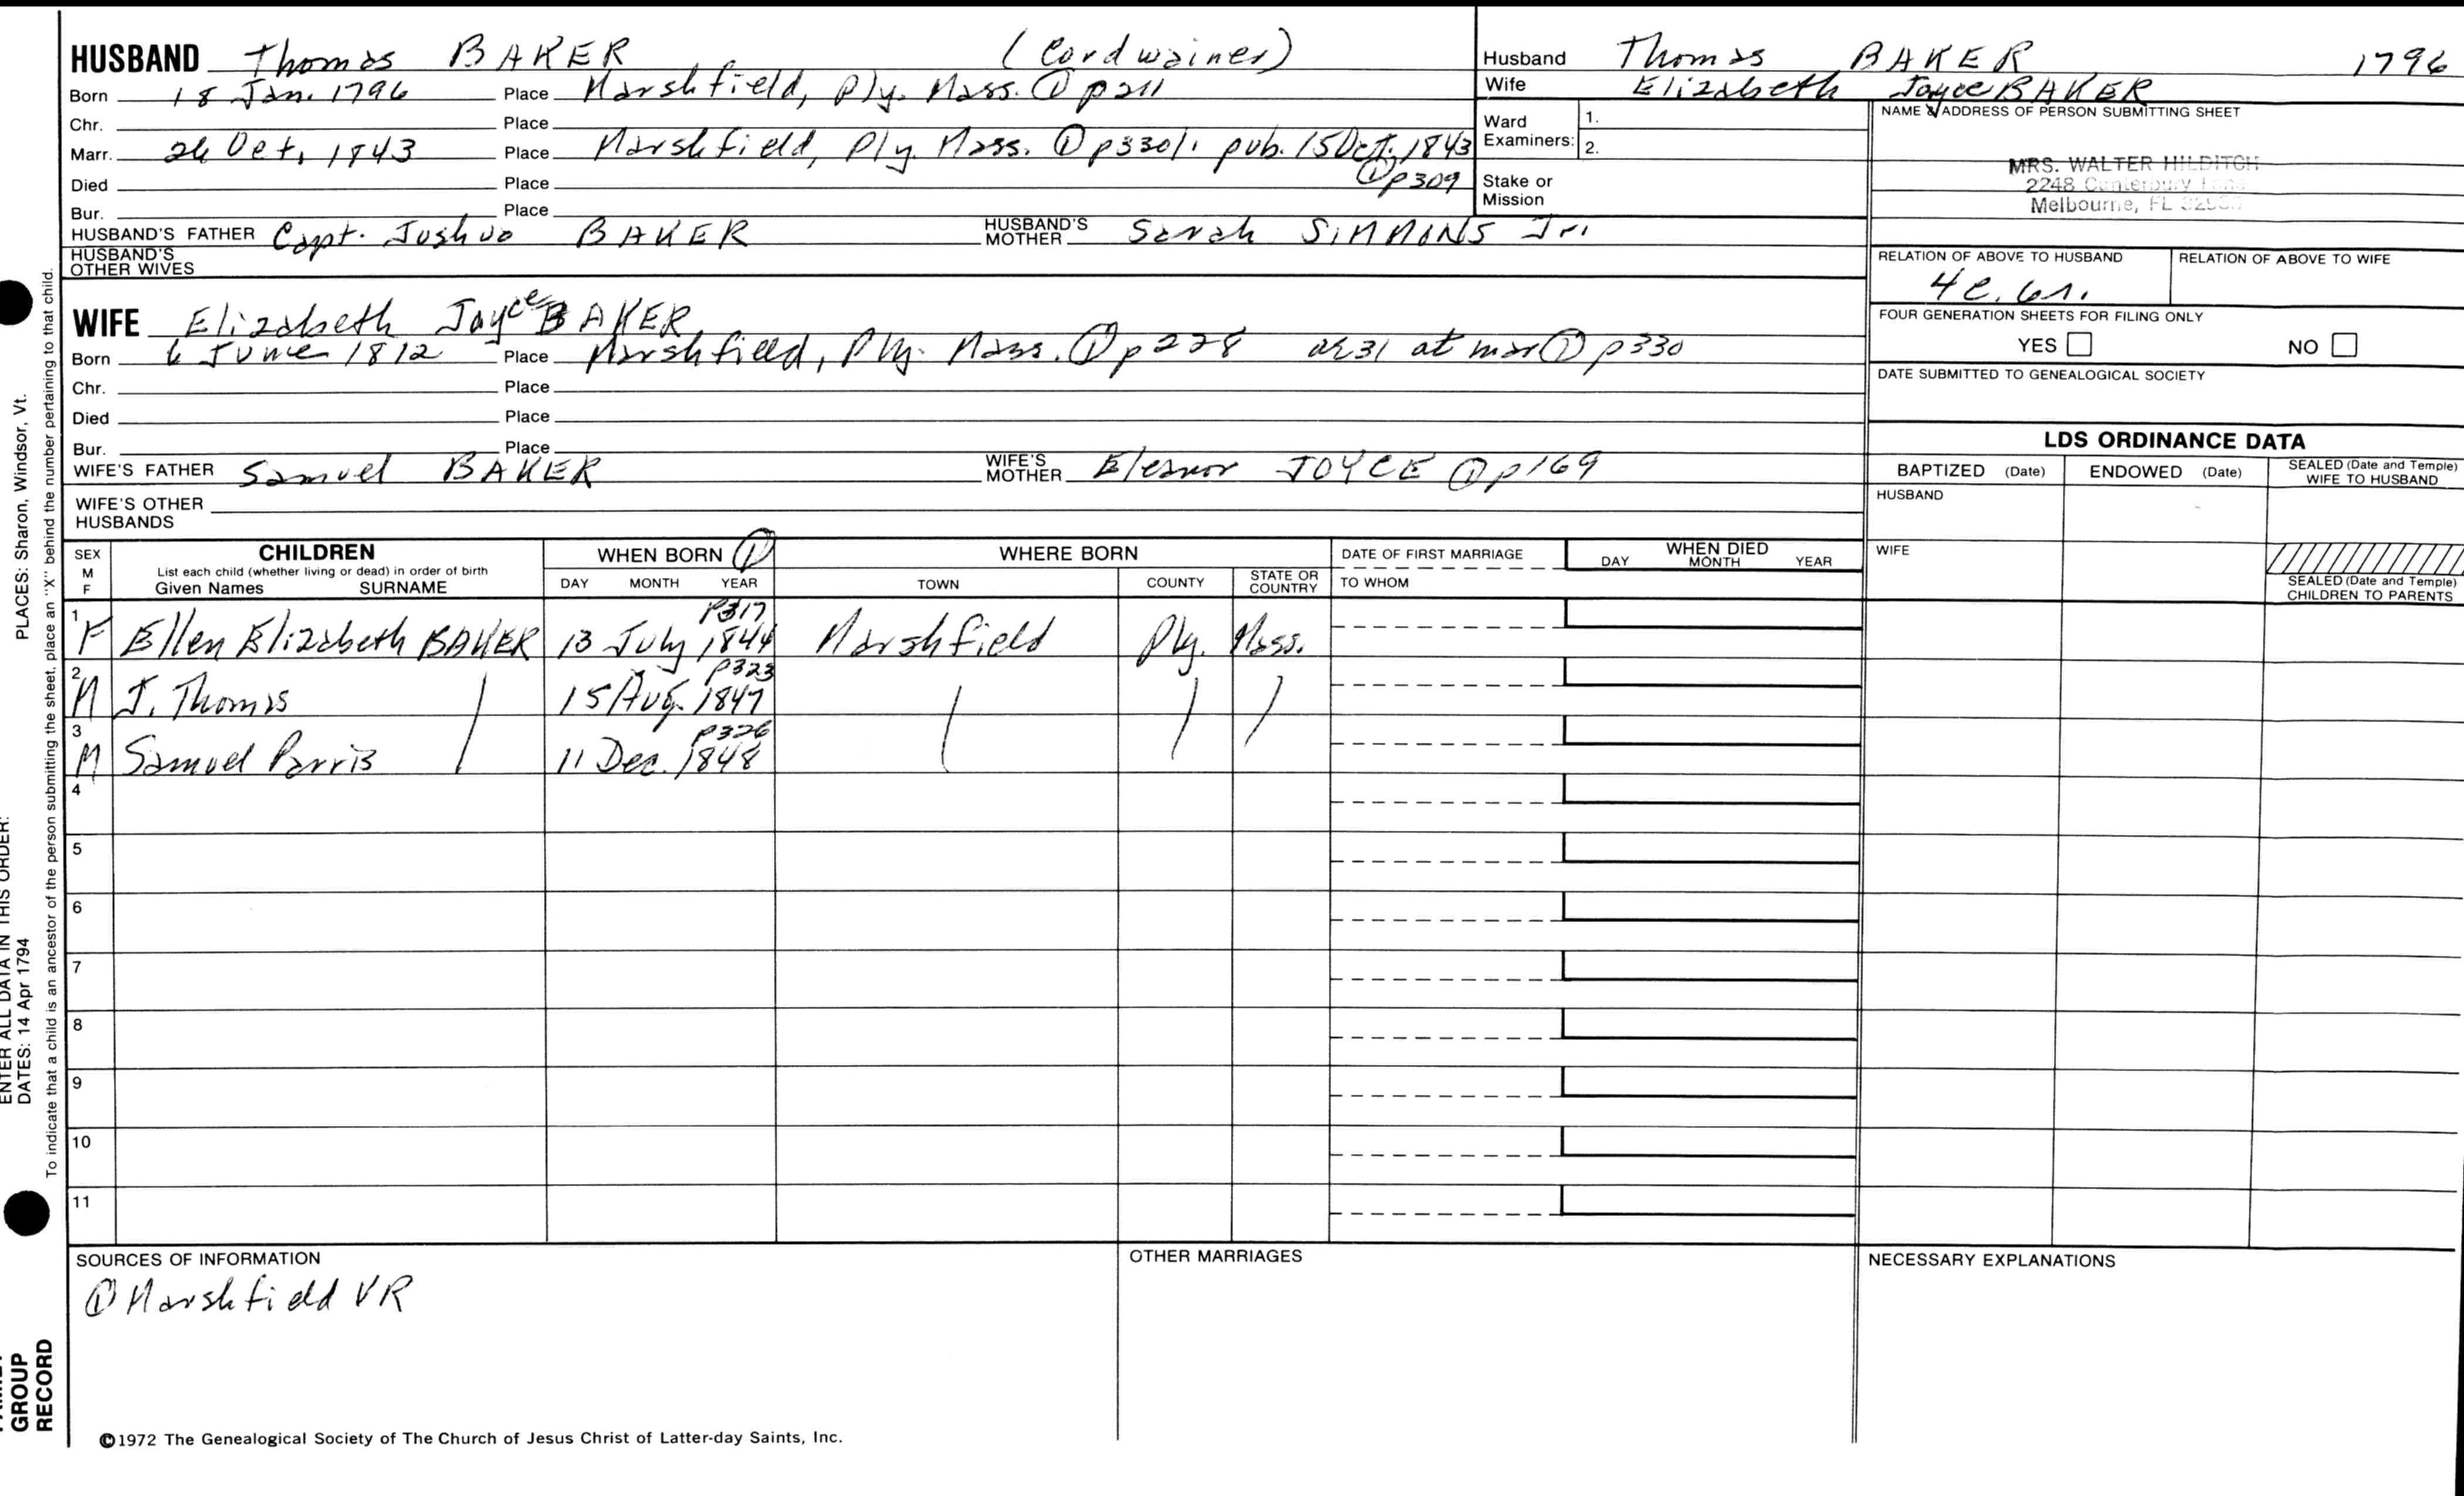 HUSBAND Thomas BAKER (Cordwainer)
Born 18 Jan. 1796 Place Marshfield, Ply. Mass. ① p211
Chr. Place
Marr. 26 Oct. 1843 Place Marshfield, Ply. Mass. ① p330; pub. 15 Oct. 1843
① p309
Died Place
Bur. Place
HUSBAND'S FATHER Capt. Joshua BAKER HUSBAND'S MOTHER Sarah SIMMONS Jr.
HUSBAND'S OTHER WIVES
Husband Thomas BAKER 1796
Wife Elizabeth Joyce BAKER
Ward Examiners: 1.
2.
Stake or Mission
NAME & ADDRESS OF PERSON SUBMITTING SHEET
MRS. WALTER HILDITCH
2248 Canterbury Lane
Melbourne, FL
RELATION OF ABOVE TO HUSBAND
4 c.
RELATION OF ABOVE TO WIFE
FOUR GENERATION SHEETS FOR FILING ONLY
YES NO
DATE SUBMITTED TO GENEALOGICAL SOCIETY
WIFE Elizabeth Joyce BAKER
Born 6 June 1812 Place Marshfield, Ply. Mass. ① p228 ae 31 at mar ① p330
Chr. Place
Died Place
Bur. Place
WIFE'S FATHER Samuel BAKER WIFE'S MOTHER Eleanor JOYCE ① p169
WIFE'S OTHER HUSBANDS
LDS ORDINANCE DATA
BAPTIZED (Date) ENDOWED (Date) SEALED (Date and Temple) WIFE TO HUSBAND
HUSBAND
WIFE
SEALED (Date and Temple) CHILDREN TO PARENTS
SEX M F
CHILDREN
List each child (whether living or dead) in order of birth
Given Names SURNAME
WHEN BORN ①
DAY MONTH YEAR
WHERE BORN
TOWN COUNTY STATE OR COUNTRY
DATE OF FIRST MARRIAGE
TO WHOM
WHEN DIED
DAY MONTH YEAR
p317
1 F Ellen Elizabeth BAKER 13 July 1844 Marshfield Ply. Mass.
p323
2 M J. Thomas 15 Aug. 1847
p326
3 M Samuel Parris 11 Dec. 1848
4
5
6
7
8
9
10
11
SOURCES OF INFORMATION
① Marshfield VR
OTHER MARRIAGES
NECESSARY EXPLANATIONS
©1972 The Genealogical Society of The Church of Jesus Christ of Latter-day Saints, Inc.
GROUP
RECORD
ENTER ALL DATA IN THIS ORDER:
DATES: 14 Apr 1794
PLACES: Sharon, Windsor, Vt.
To indicate that a child is an ancestor of the person submitting the sheet, place an "X" behind the number pertaining to that child.